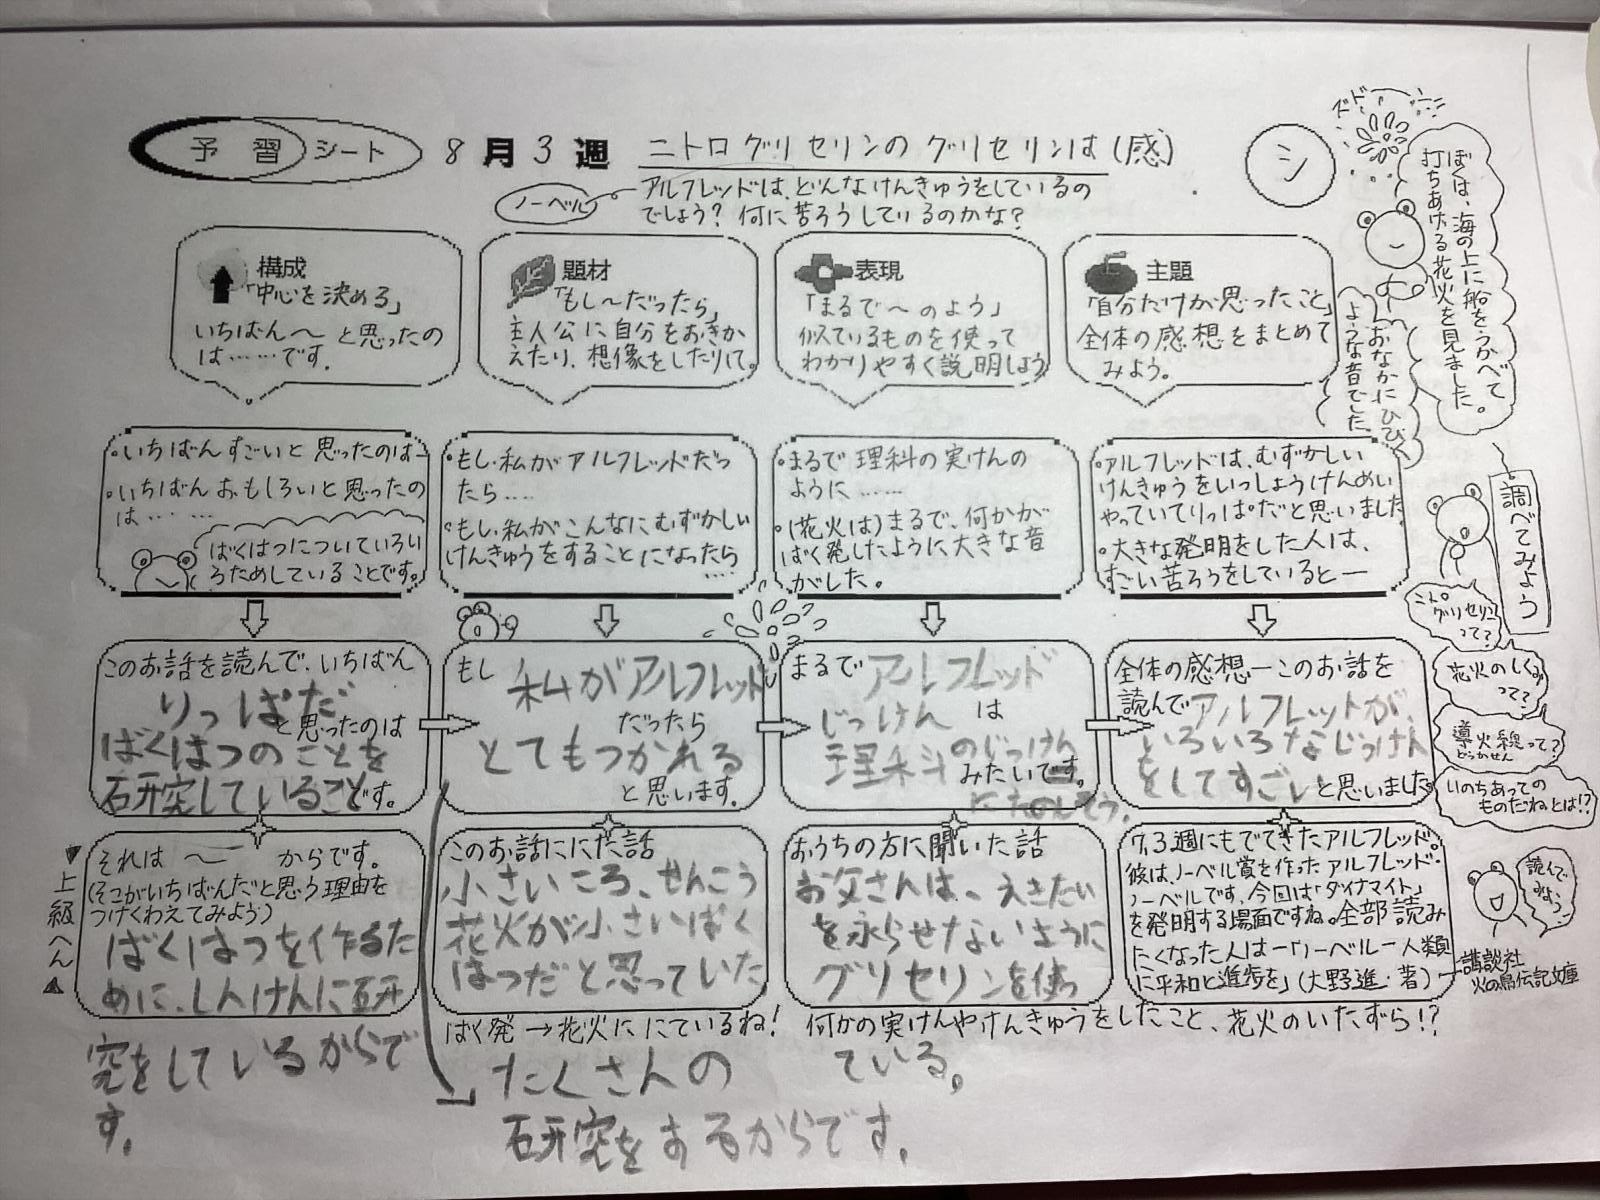 予習シート 8月3週 ニトログリセリンのグリセリンは(感)
シ
ノーベル
アルフレッドは、どんなけんきゅうをしているの
でしょう？何に苦ろうしているのかな？
構成
「中心を決める」
いちばん〜と思ったの
は……です。
題材
「もし〜だったら」
主人公に自分をおきか
えたり、想像をしたりして。
表現
「まるで〜のよう」
似ているものを使って
わかりやすく説明しよう
主題
「自分だけが思ったこと」
全体の感想をまとめて
みよう。
ドド
ぼくは、海の上に船をうかべて
打ちあげる花火を見ました。
おなかにひびく
ような音でした。
・いちばんすごいと思ったのは―
・いちばんおもしろいと思ったの
は……
ばくはつについていろい
ろためしていることです。
・もし、私がアルフレッドだっ
たら……
・もし、私がこんなにむずかしい
けんきゅうをすることになったら
……
・まるで理科の実けんの
ように……
・(花火は)まるで、何かが
ばく発したように大きな音
がした。
・アルフレッドは、むずかしい
けんきゅうをいっしょうけんめい
やっていてりっぱだと思いました
・大きな発明をした人は、
すごい苦ろうをしていると―
調べてみよう
ニトログリセリン
って？
花火のしくみ
って？
導火線って？
どうかせん
いのちあっての
ものだねとは!?
このお話を読んで、いちばん
りっぱだ
と思ったのは
ばくはつのことを
研究していることです。
もし 私がアルフレッド
だったら
とてもつかれる
と思います。
まるで アルフレッド
じっけん は
理科のじっけん
みたいです。
全体の感想―このお話を
読んで アルフレットが、
いろいろなじっけん
をしてすごい と思いました。
▲上級へん▲
それは 〜 からです。
(そこがいちばんだと思う理由を
つけくわえてみよう)
ばくはつを作るた
めに、しんけんに研
究をしているからで
す。
このお話ににた話
小さいころ、せんこう
花火が小さいばく
はつだと思っていた
ばく発→花火ににているね！
たくさんの
研究をするからです。
おうちの方に聞いた話
お父さんは、えきたい
を氷らせないように
グリセリンを使っ
何かの実けんやけんきゅうをしたこと、花火のいたずら!?
ている。
7.3週にもでてきたアルフレッド。
彼は、ノーベル賞を作ったアルフレッド・
ノーベルです。今回は「ダイナマイト」
を発明する場面ですね。全部読み
たくなった人は―「ノーベル―人類
に平和と進歩を」(大野進・著)
講談社
火の鳥伝記文庫
読んでみよう